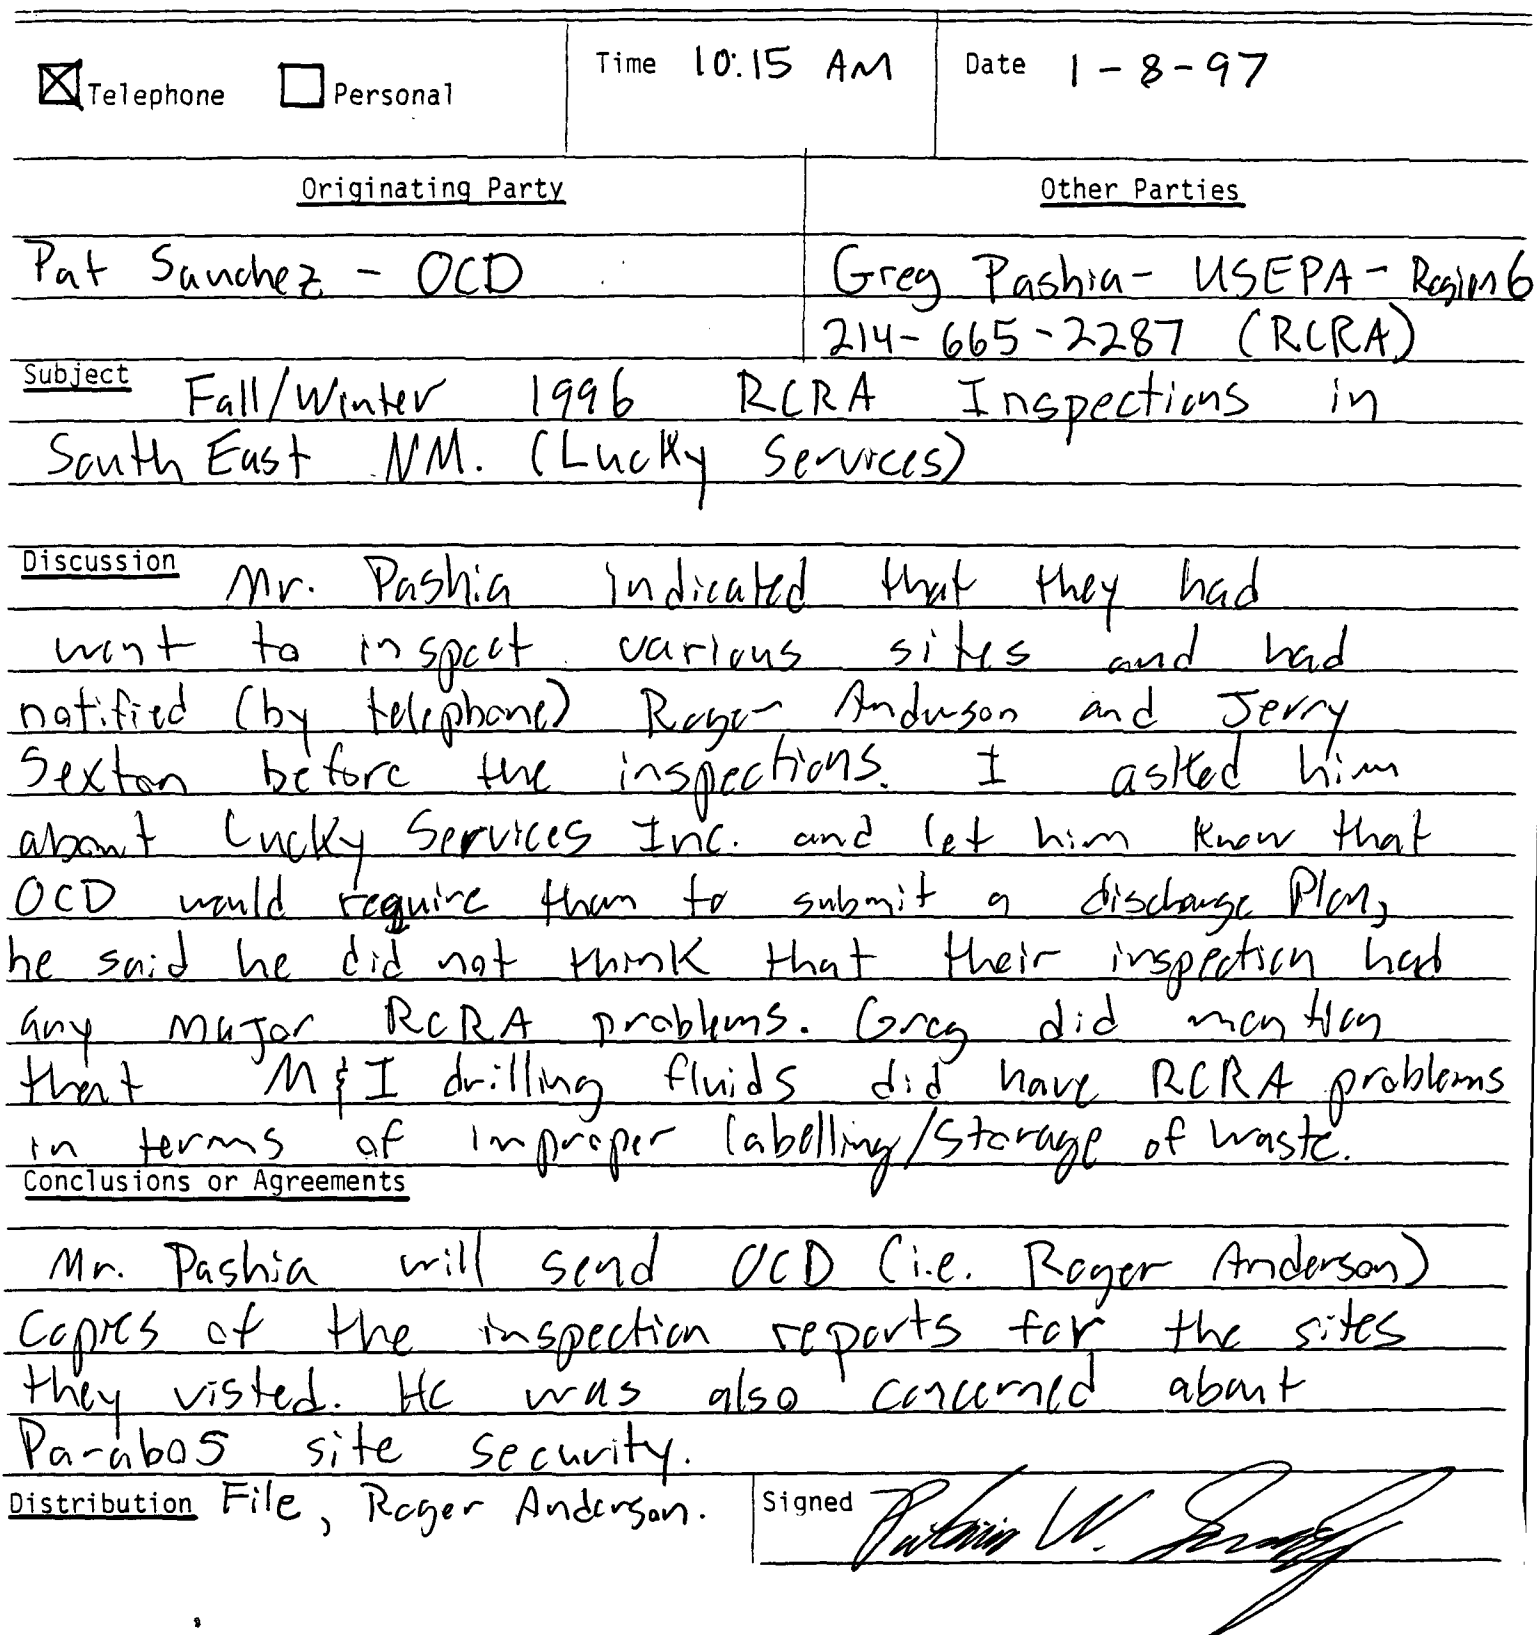 ☒ Telephone ☐ Personal Time 10:15 AM Date 1-8-97
Originating Party Other Parties
Pat Sanchez - OCD Greg Pashia - USEPA - Region 6
214-665-2287 (RCRA)
Subject Fall/Winter 1996 RCRA Inspections in
South East NM. (Lucky Services)
Discussion Mr. Pashia indicated that they had
went to inspect various sites and had
notified (by telephone) Roger Anderson and Jerry
Sexton before the inspections. I asked him
about Lucky Services Inc. and let him know that
OCD would require them to submit a discharge Plan,
he said he did not think that their inspection had
any major RCRA problems. Greg did mention
that M&I drilling fluids did have RCRA problems
in terms of improper labelling/storage of waste.
Conclusions or Agreements
Mr. Pashia will send OCD (i.e. Roger Anderson)
Copies of the inspection reports for the sites
they visted. He was also concerned about
Parabos site security.
Distribution File, Roger Anderson. Signed Patricio W. Sanchez